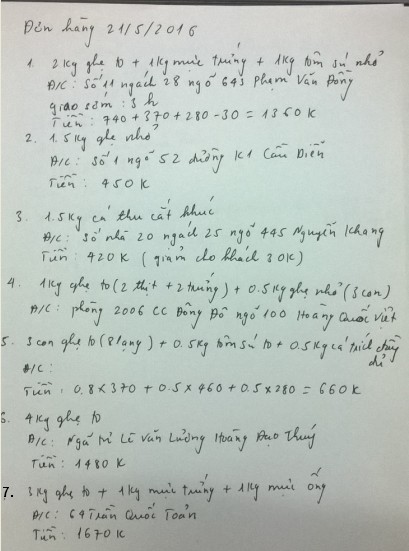 Đơn hàng 21/5/2016
1. 2kg ghẹ to + 1kg mực trứng + 1kg tôm sú nhỏ
Đ/C: Số 11 ngách 28 ngõ 643 Phạm Văn Đồng
giao sớm: 3h
Tiền: 740 + 370 + 280 - 30 = 1360K
2. 1.5kg ghẹ nhỏ
Đ/C: Số 1 ngõ 52 đường K1 Cầu Diễn
Tiền: 450K
3. 1.5kg cá thu cắt khúc
Đ/C: Số nhà 20 ngách 25 ngõ 445 Nguyễn Khang
Tiền: 420K (giảm cho khách 30K)
4. 1kg ghẹ to (2 thịt + 2 trứng) + 0.5kg ghẹ nhỏ (3 con)
Đ/C: phòng 2006 CC Đông Đô ngõ 100 Hoàng Quốc Việt
5. 3 con ghẹ to (8 lạng) + 0.5kg tôm sú to + 0.5kg cá trích
Đ/C:
Tiền: 0.8 x 370 + 0.5 x 460 + 0.5 x 280 = 660K
6. 4kg ghẹ to
Đ/C: Ngã tư Lê Văn Lương Hoàng Đạo Thúy
Tiền: 1480K
7. 3kg ghẹ to + 1kg mực trứng + 1kg mực ống
Đ/C: 64 Trần Quốc Toản
Tiền: 1670K